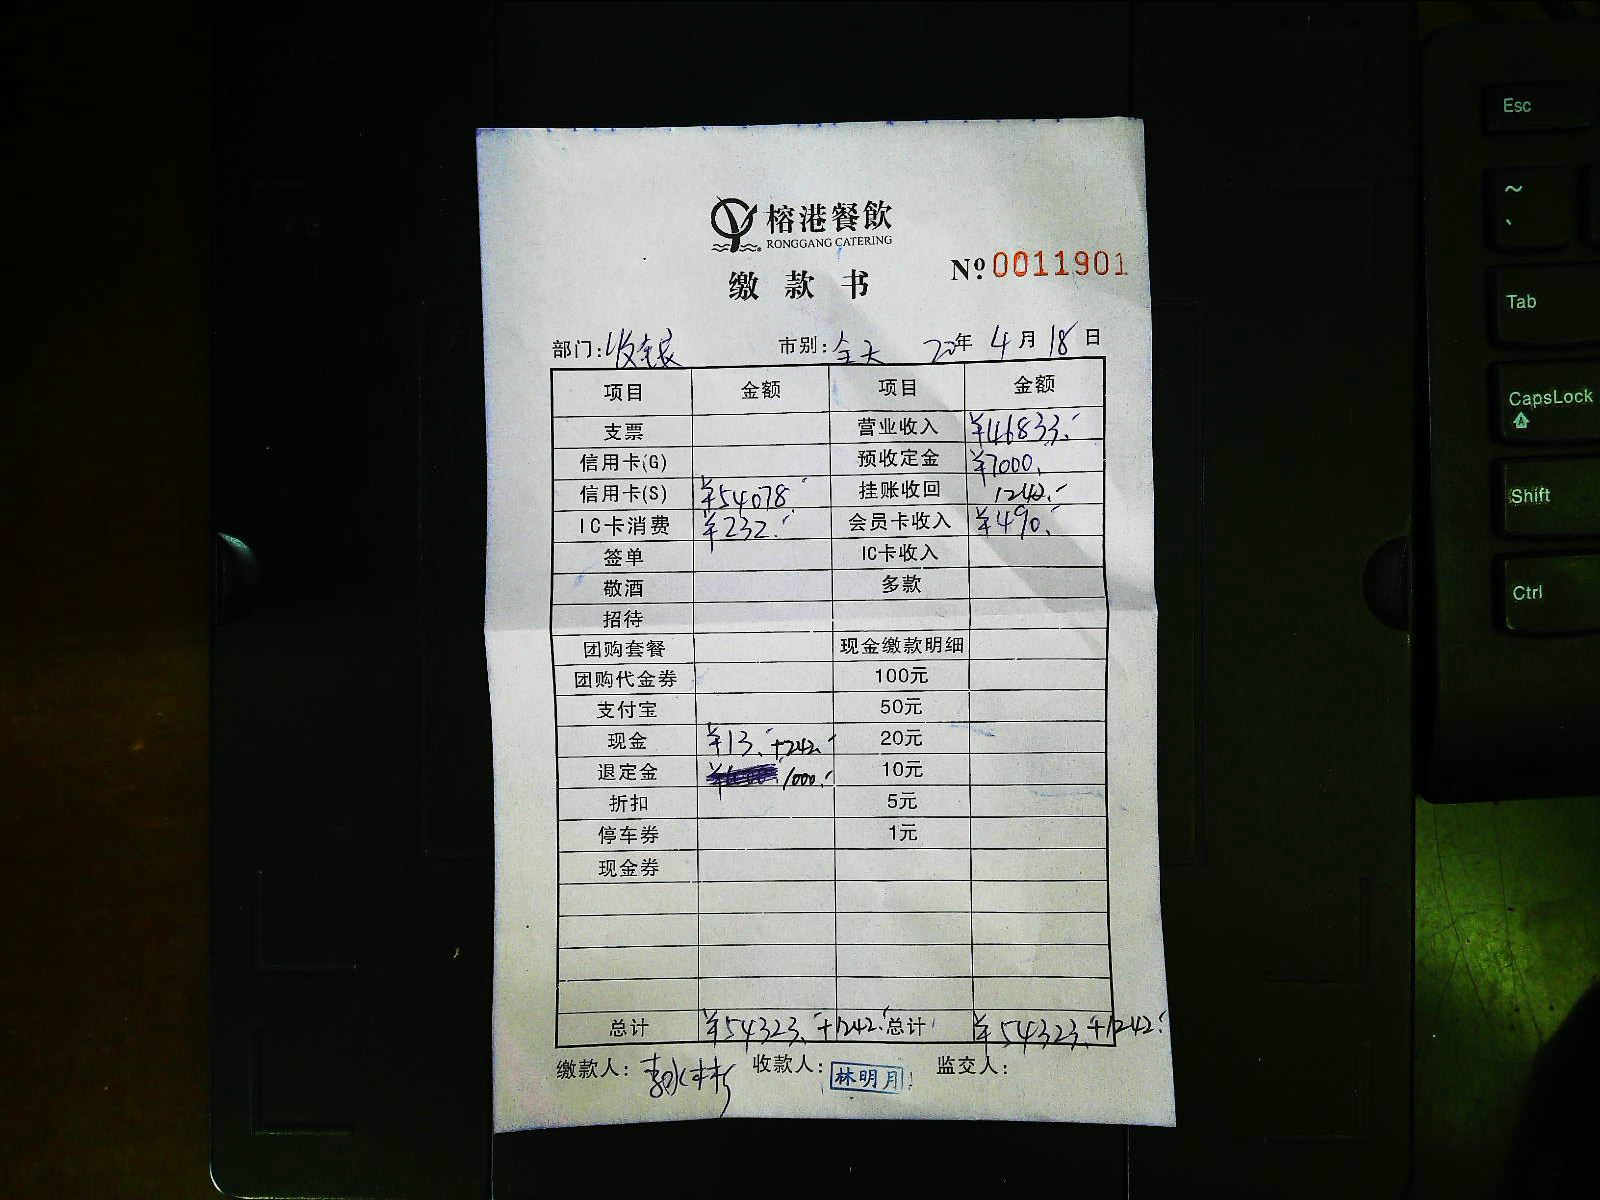 榕港餐飲
RONGGANG CATERING
缴款书
№0011901
部门:收银 市别:全天 20年4月18日
项目 金额 项目 金额
支票 营业收入 ¥46833.-
信用卡(G) 预收定金 ¥7000.
信用卡(S) ¥54078.- 挂账收回 1242.-
IC卡消费 ¥232.- 会员卡收入 ¥490.-
签单 IC卡收入
敬酒 多款
招待
团购套餐 现金缴款明细
团购代金券 100元
支付宝 50元
现金 ¥13.+242.- 20元
退定金 1000.- 10元
折扣 5元
停车券 1元
现金券
总计 ¥54323.+1242.- 总计 ¥54323.+1242.-
缴款人: 收款人:林明月 监交人:
Esc
~
`
Tab
CapsLock
Shift
Ctrl